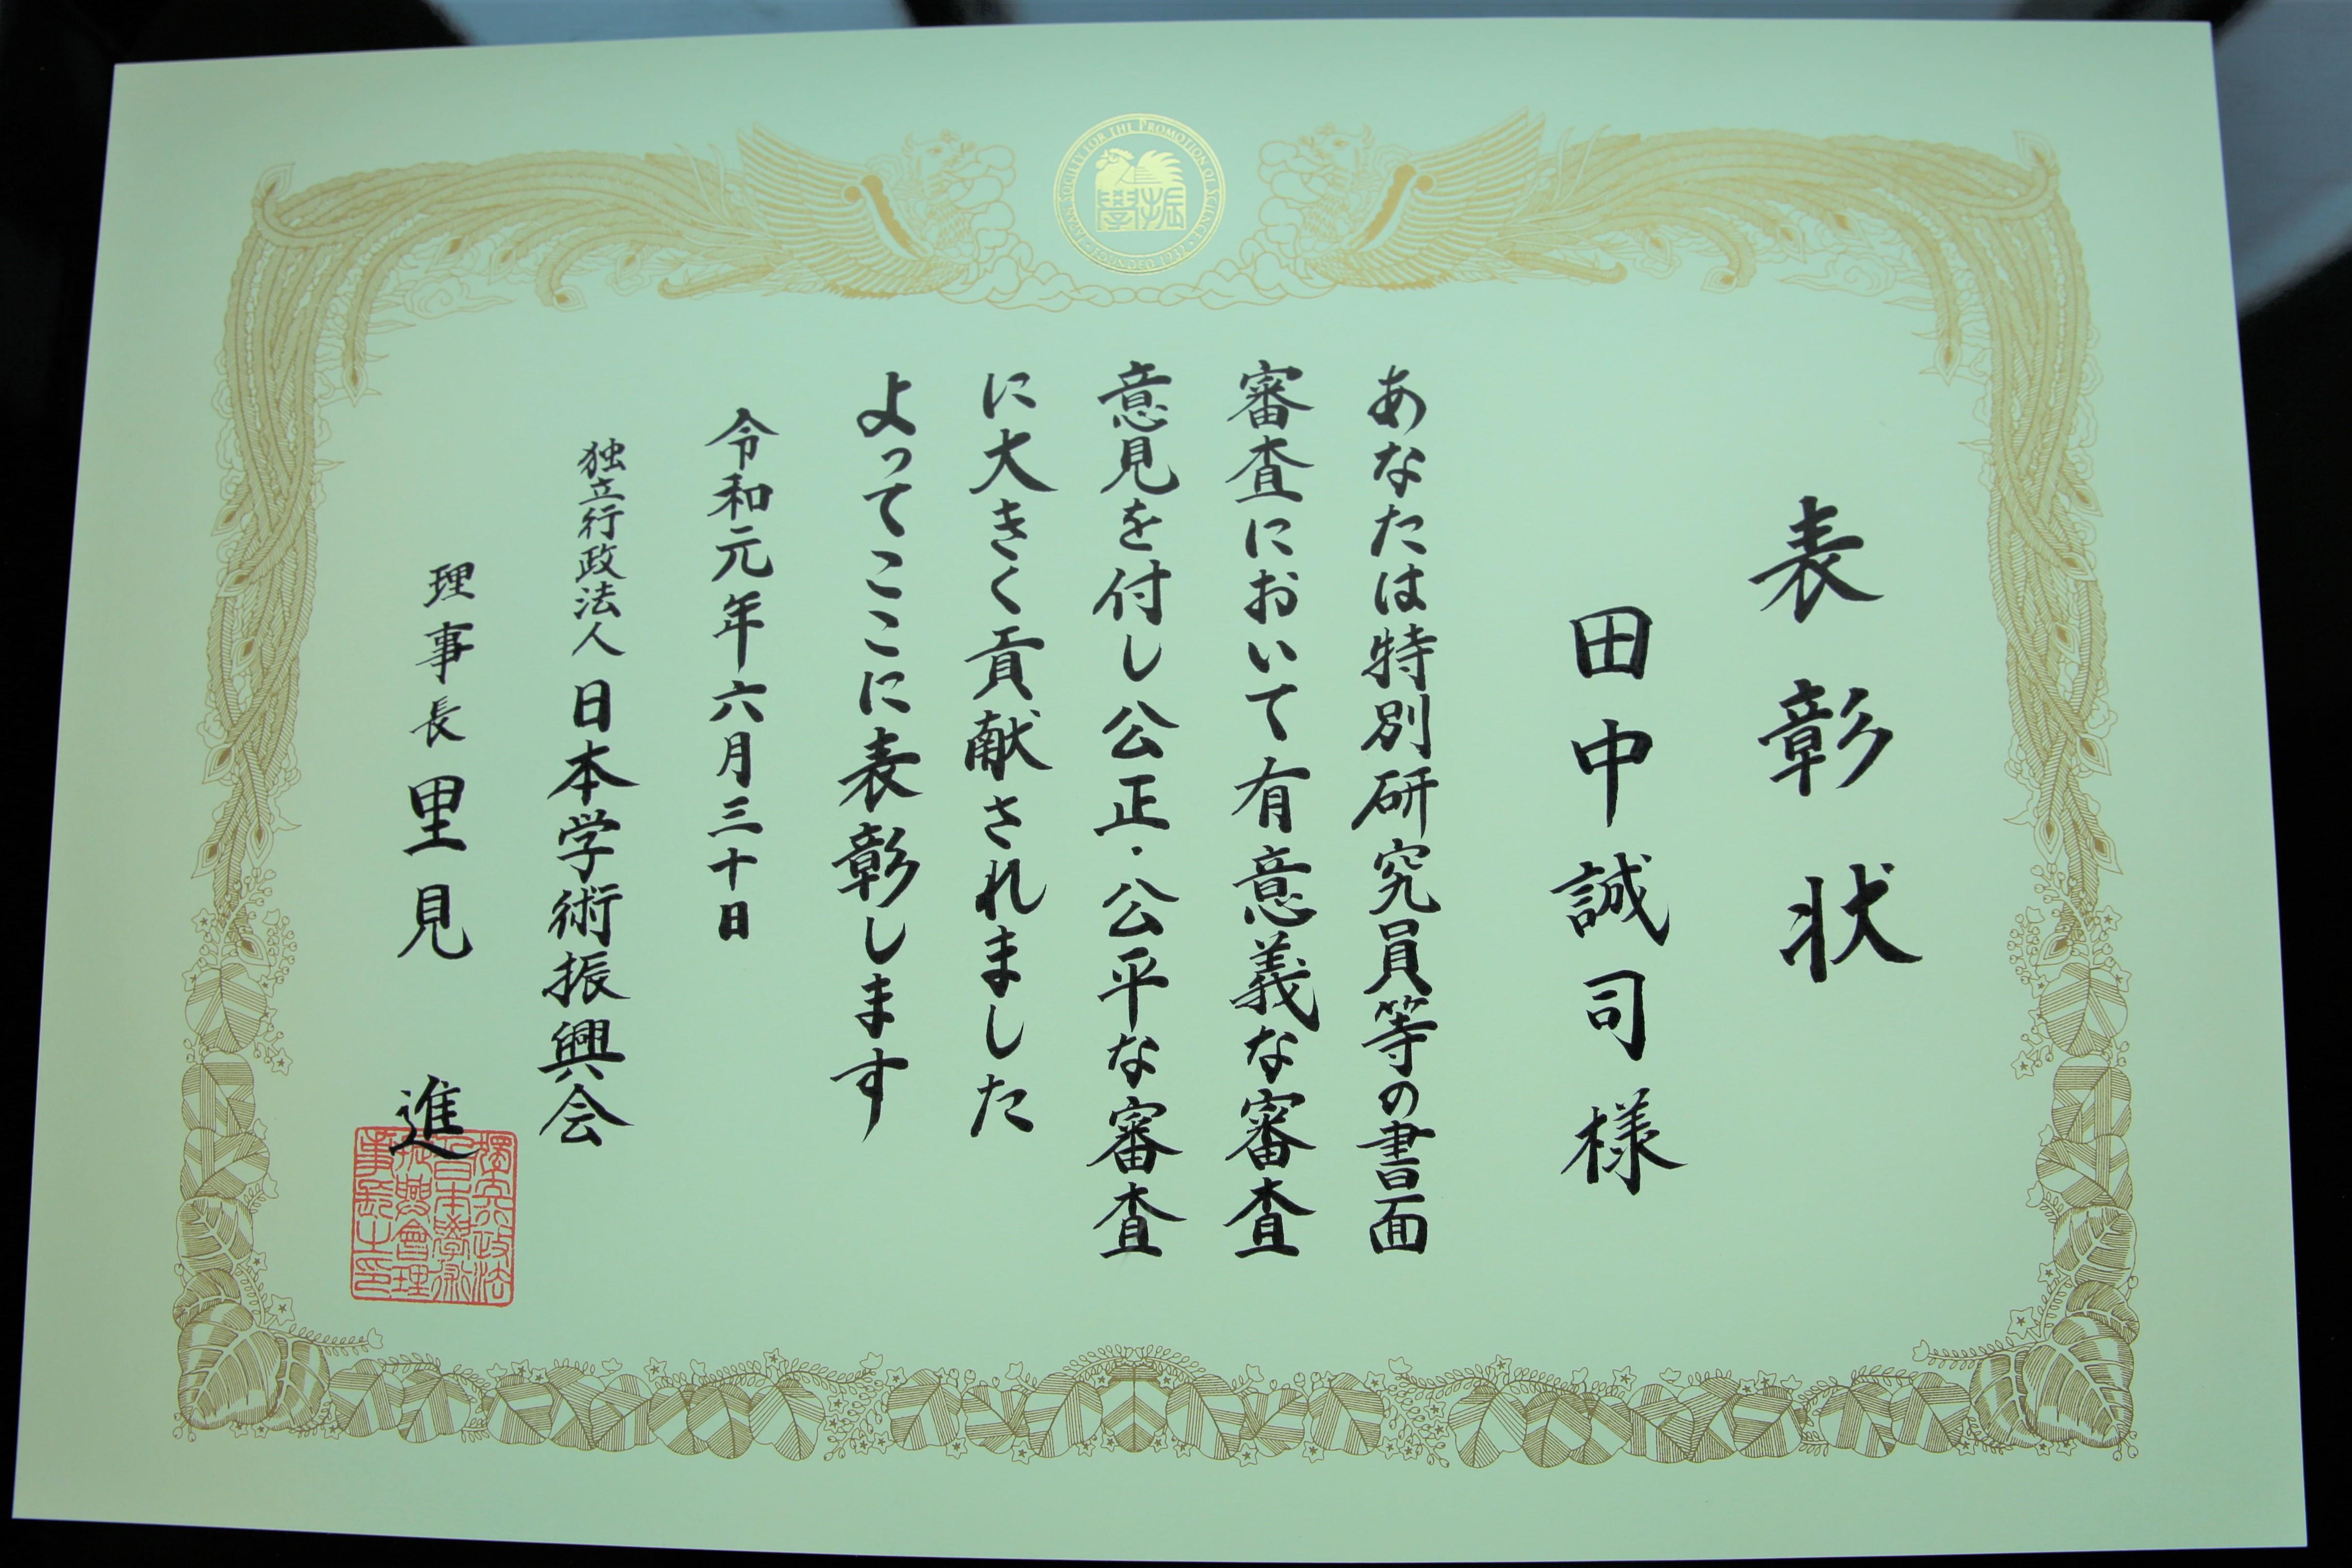 JAPAN SOCIETY FOR THE PROMOTION OF SCIENCE
FOUNDED 1932
学振
表彰状
田中誠司様
あなたは特別研究員等の書面
審査において有意義な審査
意見を付し公正・公平な審査
に大きく貢献されました
よってここに表彰します
令和元年六月三十日
独立行政法人日本学術振興会
理事長里見進